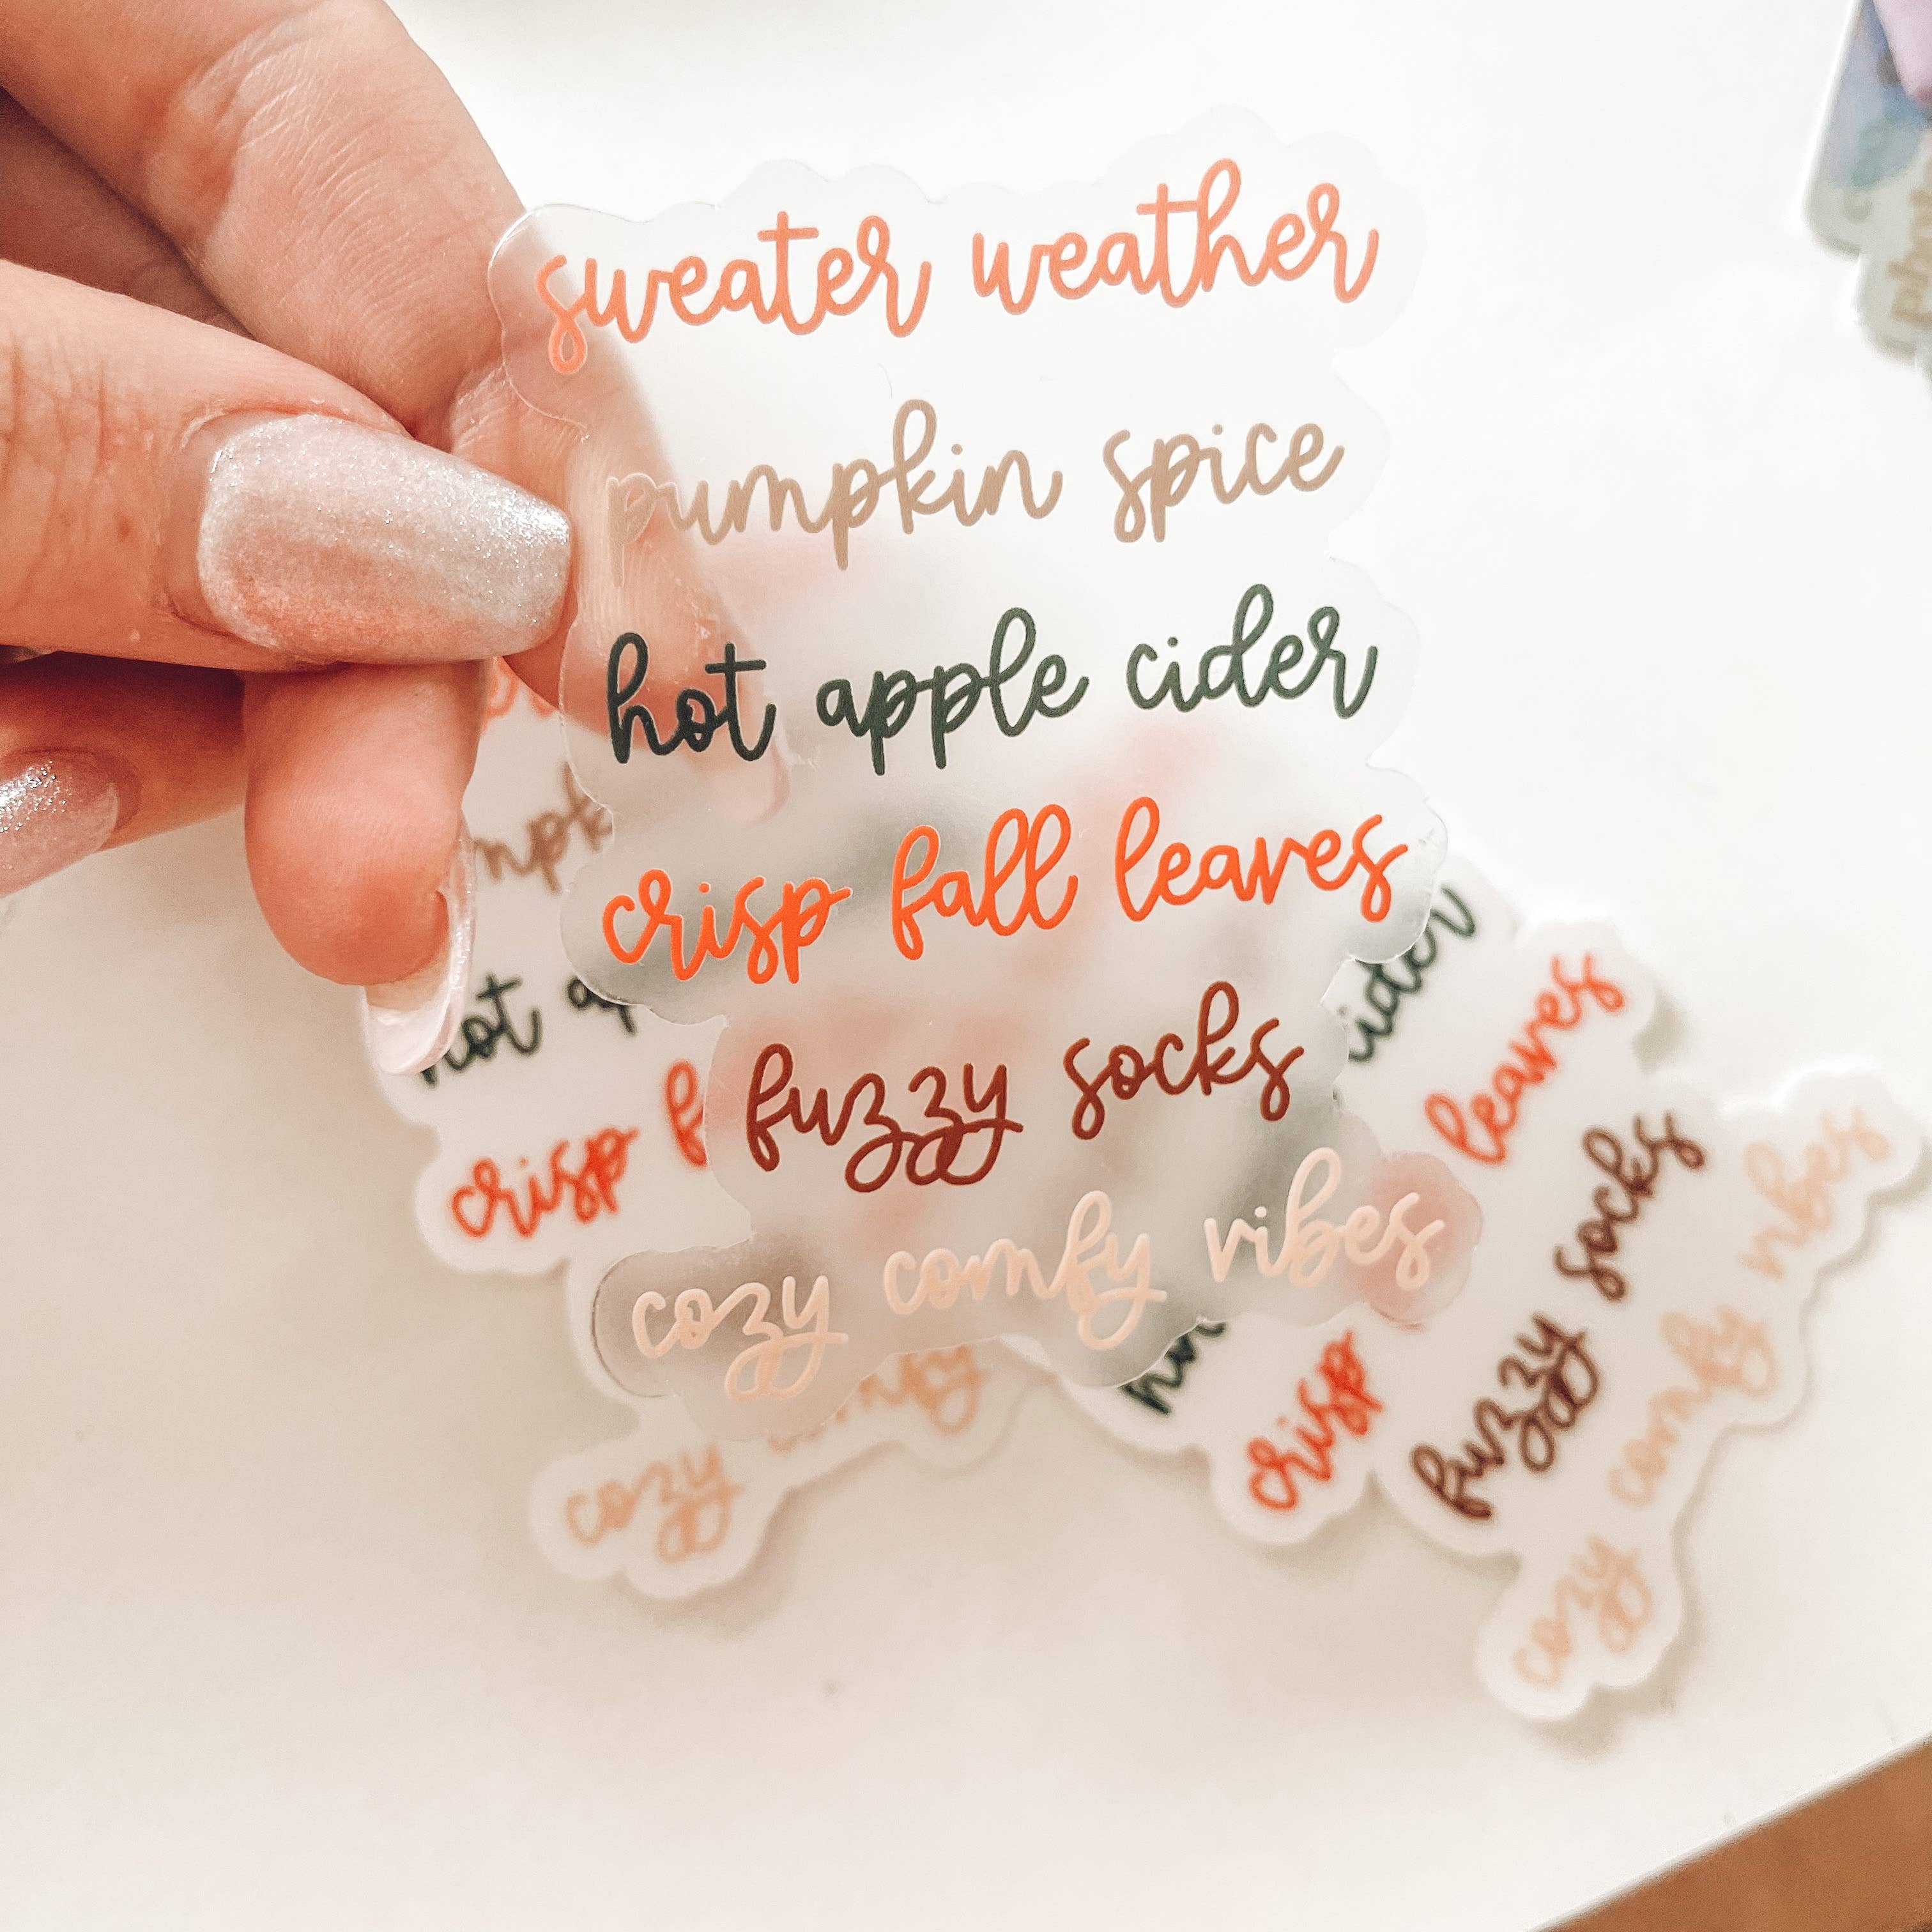 sweater weather
pumpkin spice
hot apple cider
crisp fall leaves
fuzzy socks
cozy comfy vibes
hot
crisp
cozy comfy
leaves
crisp
fuzzy socks
cozy comfy vibes